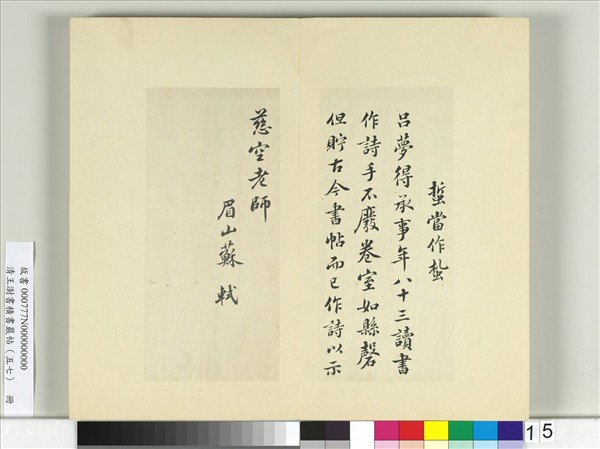 蜇當作蟄
呂夢得承事年八十三讀書
作詩手不廢卷室如縣磬
但貯古今書帖而已作詩以示
慈空老師
眉山蘇軾
故書000777N000000000
清王澍書積書巖帖（五七） 冊
15